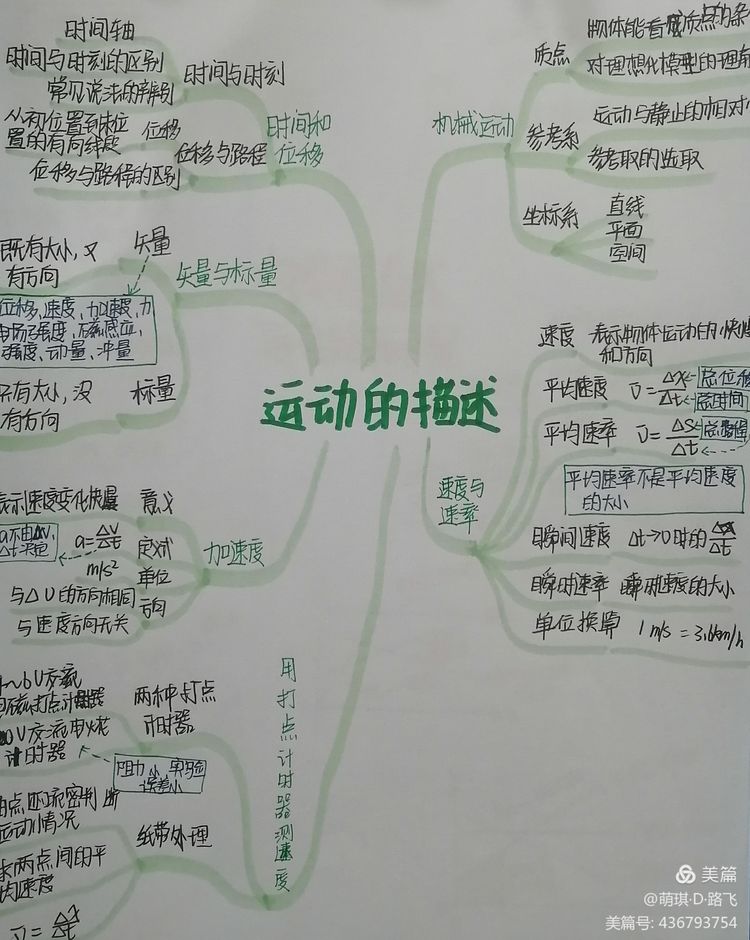 运动的描述
时间和
位移
时间与时刻
时间轴
时间与时刻的区别
常见说法的辨别
位移与路程
位移
从初位置到末位
置的有向线段
位移与路程的区别
矢量与标量
矢量
既有大小,又
有方向
位移,速度,加速度,力
电场强度,磁感应
强度,动量,冲量
标量
只有大小,没
有方向
加速度
意义
表示速度变化快慢
定义式
a=Δv/Δt
a不由Δv,
Δt决定
单位
m/s²
方向
与Δυ的方向相同
与速度方向无关
用打点计时器测速度
两种打点
计时器
4~6V交流
电磁打点计时器
220V交流电火花
计时器
阻力小,实验
误差小
纸带处理
由点迹疏密判断
运动情况
求两点间的平
均速度
υ=Δx/Δt
机械运动
质点
物体能看成质点的条
对理想化模型的理解
参考系
运动与静止的相对
参考取的选取
坐标系
直线
平面
空间
速度与
速率
速度 表示物体运动的快慢
和方向
平均速度 υ=Δx/Δt
总位移
总时间
平均速率 υ=ΔS/Δt
总路程
平均速率不是平均速度
的大小
瞬间速度 Δt→0时的Δx/Δt
瞬时速率 瞬时速度的大小
单位换算 1m/s=3.6km/h
美篇
@萌琪·D·路飞
美篇号: 436793754